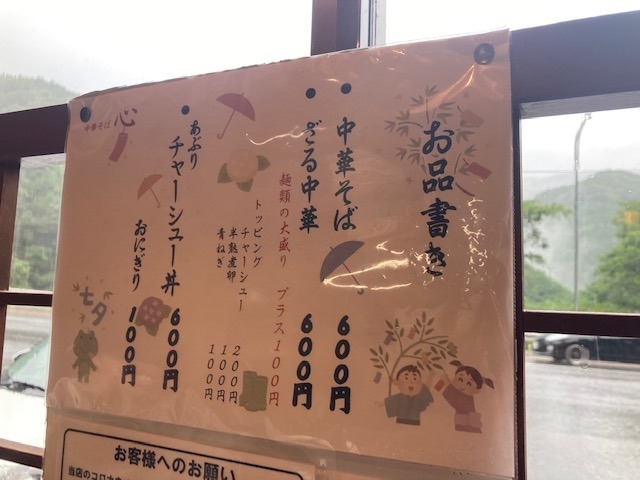 お品書き
中華そば 600円
ざる中華 600円
麺類の大盛り プラス100円
トッピング
チャーシュー 200円
半熟煮卵 100円
青ねぎ 100円
あぶり
チャーシュー丼 600円
おにぎり 100円
中華そば 心
七夕
お客様へのお願い